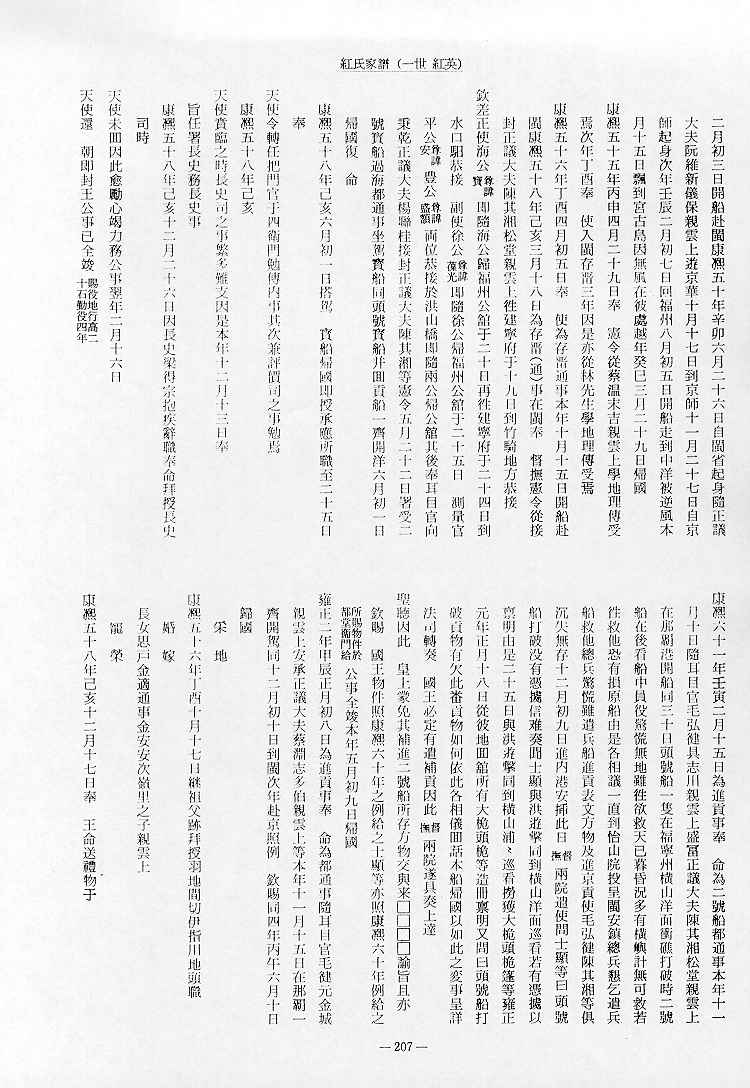 紅氏家譜(一世 紅英)
二月初三日開船赴閩康熙五十年辛卯六月二十六日自閩省起身隨正議
大夫阮維新儀保親雲上逰京華十月十七日到京師十一月二十七日自京
師起身次年壬辰二月初七日回福州八月初五日開船走到中洋被逆風本
月十五日飄到宮古島因無風在彼處越年癸巳三月二十九日帰國
康熙五十五年丙申四月二十九日奉 憲令從蔡溫末吉親雲上學地理傳受
焉次年丁酉奉 使入閩存留三年因是亦從林先生學地理傳受焉
康熙五十六年丁酉四月初五日奉 使為存留通事本年十月十五日開船赴
閩康熙五十八年己亥三月十八日為存留(通)事在閩奉 督撫憲令從接
封正議大夫陳其湘松堂親雲上徃建寧府于十九日到竹騎地方恭接
欽差正使海公尊諱寶即隨海公歸福州公舘于二十日再徃建寧府于二十四日到
水口駅恭接 副使徐公尊諱葆光即隨徐公帰福州公舘于二十五日 測量官
平公尊諱安 豊公尊諱盛額 両位恭接於洪山橋即隨兩公帰公舘其後奉耳目官向
秉乾正議大夫楊聯桂接封正議大夫陳其湘等憲令五月二十二日署受二
號寶船過海都通事坐駕寶船同頭號寶船并囬貢船一齊開洋六月初一日
帰國復 命
康熙五十八年己亥六月初一日搭駕 寶船帰國即授承應所職至二十五日
奉
天使令轉任把門官于四衛門勉傳内事其次兼評價司之事勉焉
康熙五十八年己亥
天使賁臨之時長史司之事繁多難支因是本年十二月十三日奉
旨任署長史務長史事
康熙五十八年己亥十二月二十六日因長史梁得宗抱疾辭職奉命拜授長史
司時
天使未囬因此愈勵心竭力務公事翌年二月十六日
天使還 朝即封王公事已全竣 賜役地行高二十石勤役四年
康熙六十一年壬寅二月十五日為進貢事奉 命為二號船都通事本年十一
月十日隨耳目官毛弘健具志川親雲上盛冨正議大夫陳其湘松堂親雲上
在那覇港開船同三十日頭號船一隻在福寧州横山洋面衝礁打破時二號
船在後看船中員役驚慌無地雖徃欲救天已暮昏況多有横嶼計無可救若
徃救他恐有損原船由是各相議一直到怡山院投呈閩安鎮總兵懇乞遣兵
船救他總兵驚慌雖遣兵船進貢表文方物及進京貢使毛弘健陳其湘等俱
沉失無存十二月初九日進内港安挿此日 督撫 兩院遣使問士顯等曰頭號
船打破没有憑據信难奏聞士顯與洪逰擊同到横山洋面巡看若有憑據以
禀明由是二十五日與洪逰擊同到横山浦〻巡看撈獲大桅頭桅篷等雍正
元年正月十八日從彼地囬舘所有大桅頭桅等造冊禀明又問曰頭號船打
破貢物有欠此番貢物如何依此各相儀囬話本船帰國以如此之変事呈詳
法司轉奏 國王必定有遣補貢因此 督撫 兩院遂具奏上達
聖聴因此 皇上蒙免其補進二號船所存方物交與来□□□諭旨且亦
欽賜 國王物件照康熙六十年之例給之士顯等亦照康熙六十年例給之
所賜物件於都堂衙門給 公事全竣本年五月初九日帰國
雍正二年甲辰正月初八日為進貢事奉 命為都通事隨耳目官毛健元金城
親雲上安承正議大夫蔡淵志多伯親雲上等本年十一月十五日在那覇一
齊開駕同十二月初十日到閩次年赴京照例 欽賜同四年丙午六月十日
歸國
采地
康熙五十六年丁酉十月十七日継祖父跡拜授羽地間切伊指川地頭職
婚嫁
長女思戸金適通事金安安次嶺里之子親雲上
寵榮
康熙五十八年己亥十二月十七日奉 王命送禮物于
— 207 —